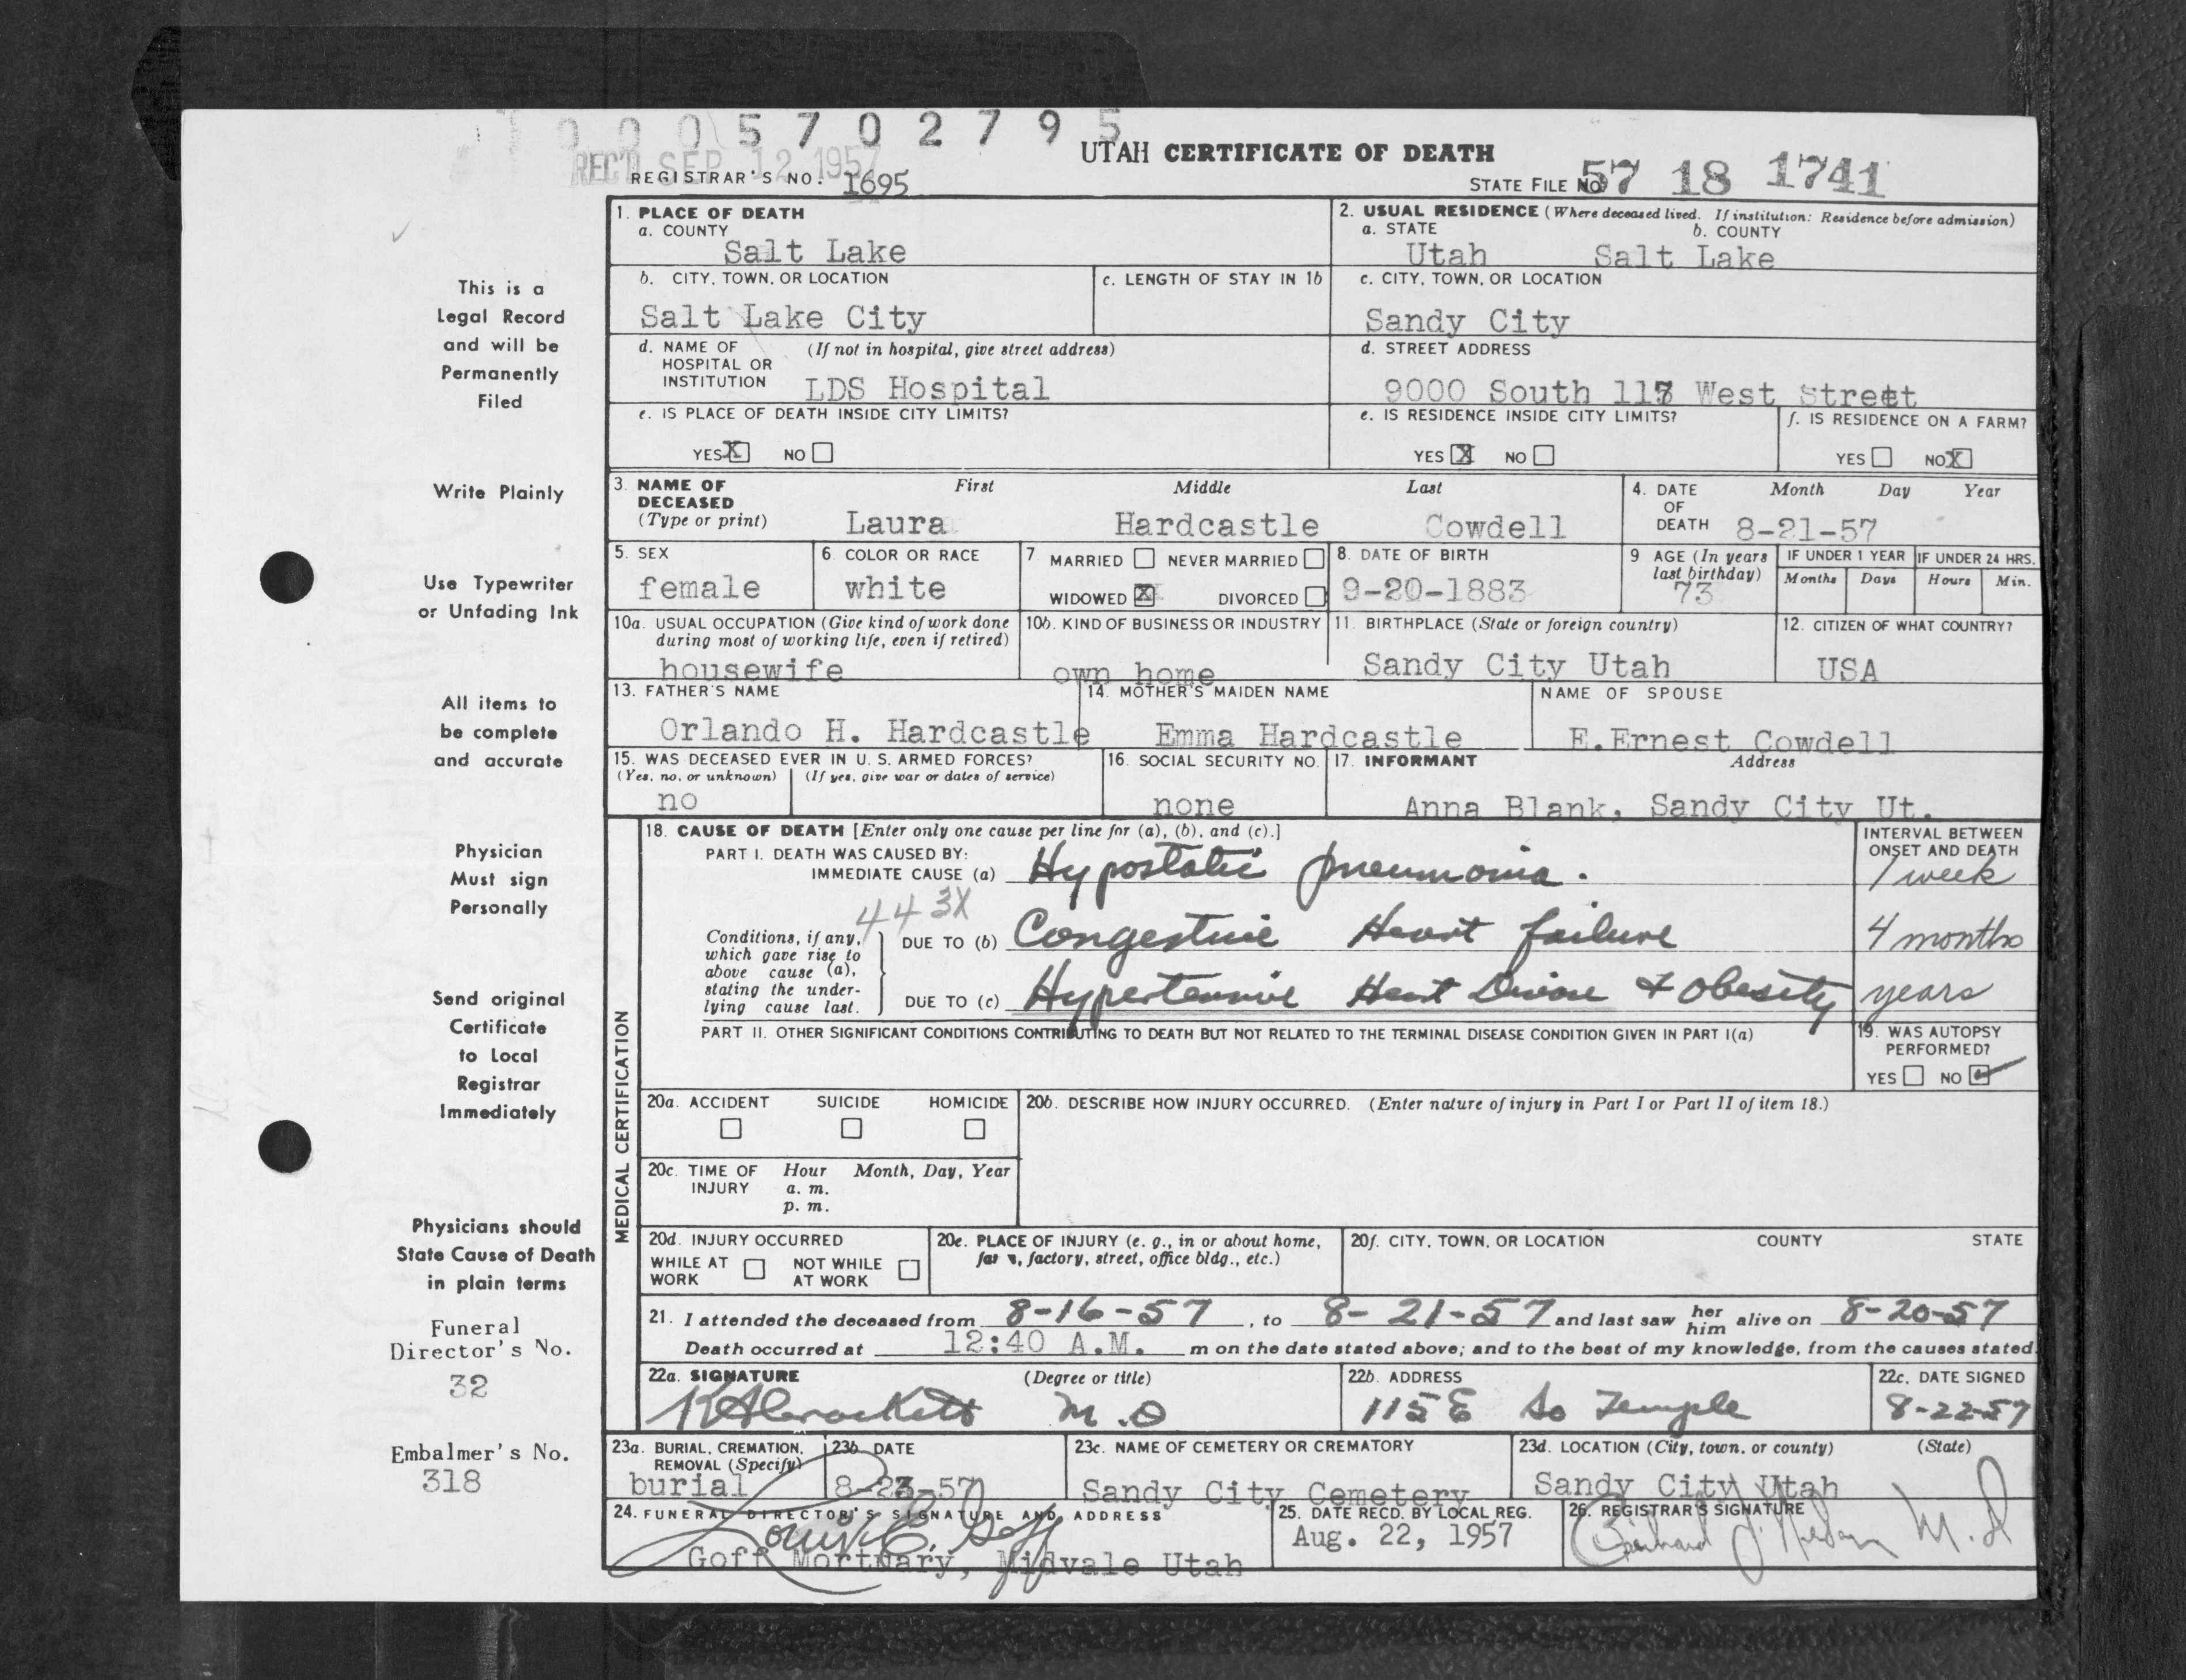 1 0 0 0 5 7 0 2 7 9 5
REC'D SEP 12 1957
UTAH CERTIFICATE OF DEATH
REGISTRAR'S NO. 1695
STATE FILE NO. 57 18 1741
1. PLACE OF DEATH
a. COUNTY
Salt Lake
2. USUAL RESIDENCE (Where deceased lived. If institution: Residence before admission)
a. STATE b. COUNTY
Utah Salt Lake
b. CITY, TOWN, OR LOCATION
Salt Lake City
c. LENGTH OF STAY IN 1b
c. CITY, TOWN, OR LOCATION
Sandy City
d. NAME OF (If not in hospital, give street address)
HOSPITAL OR
INSTITUTION LDS Hospital
d. STREET ADDRESS
9000 South West Street
e. IS PLACE OF DEATH INSIDE CITY LIMITS?
YES X NO
e. IS RESIDENCE INSIDE CITY LIMITS?
YES X NO
f. IS RESIDENCE ON A FARM?
YES NO X
3. NAME OF DECEASED
(Type or print)
First Middle Last
Laura Hardcastle Cowdell
4. DATE OF DEATH
Month Day Year
8-21-57
5. SEX
female
6. COLOR OR RACE
white
7 MARRIED NEVER MARRIED
WIDOWED X DIVORCED
8. DATE OF BIRTH
9-20-1883
9 AGE (In years
last birthday)
73
IF UNDER 1 YEAR
Months Days
IF UNDER 24 HRS.
Hours Min.
10a. USUAL OCCUPATION (Give kind of work done
during most of working life, even if retired)
housewife
10b. KIND OF BUSINESS OR INDUSTRY
own home
11. BIRTHPLACE (State or foreign country)
Sandy City Utah
12. CITIZEN OF WHAT COUNTRY?
USA
13. FATHER'S NAME
Orlando H. Hardcastle
14. MOTHER'S MAIDEN NAME
Emma Hardcastle
NAME OF SPOUSE
E.Ernest Cowdell
15. WAS DECEASED EVER IN U. S. ARMED FORCES?
(Yes, no, or unknown) (If yes, give war or dates of service)
no
16. SOCIAL SECURITY NO.
none
17. INFORMANT Address
Anna Blank, Sandy City Ut.
MEDICAL CERTIFICATION
18. CAUSE OF DEATH [Enter only one cause per line for (a), (b), and (c).]
PART I. DEATH WAS CAUSED BY:
IMMEDIATE CAUSE (a) Hypostatic pneumonia.
INTERVAL BETWEEN
ONSET AND DEATH
1 week
443X
Conditions, if any,
which gave rise to
above cause (a),
stating the under-
lying cause last.
DUE TO (b) Congestive Heart failure
4 months
DUE TO (c) Hypertensive Heart Disease + Obesity
years
PART II. OTHER SIGNIFICANT CONDITIONS CONTRIBUTING TO DEATH BUT NOT RELATED TO THE TERMINAL DISEASE CONDITION GIVEN IN PART I(a)
19. WAS AUTOPSY
PERFORMED?
YES NO ✓
20a. ACCIDENT SUICIDE HOMICIDE
20b. DESCRIBE HOW INJURY OCCURRED. (Enter nature of injury in Part I or Part II of item 18.)
20c. TIME OF INJURY
Hour Month, Day, Year
a. m.
p. m.
20d. INJURY OCCURRED
WHILE AT WORK NOT WHILE AT WORK
20e. PLACE OF INJURY (e. g., in or about home,
farm, factory, street, office bldg., etc.)
20f. CITY, TOWN, OR LOCATION COUNTY STATE
21. I attended the deceased from 8-16-57, to 8-21-57 and last saw her him alive on 8-20-57
Death occurred at 12:40 A.M. m on the date stated above; and to the best of my knowledge, from the causes stated.
22a. SIGNATURE (Degree or title)
M.D
22b. ADDRESS
115 E So Temple
22c. DATE SIGNED
8-22-57
23a. BURIAL, CREMATION,
REMOVAL (Specify)
burial
23b. DATE
8-23-57
23c. NAME OF CEMETERY OR CREMATORY
Sandy City Cemetery
23d. LOCATION (City, town, or county) (State)
Sandy City Utah
24. FUNERAL DIRECTOR'S SIGNATURE AND ADDRESS
Goff Mortuary, Midvale Utah
25. DATE RECD. BY LOCAL REG.
Aug. 22, 1957
26. REGISTRAR'S SIGNATURE
M.D
This is a
Legal Record
and will be
Permanently
Filed
Write Plainly
Use Typewriter
or Unfading Ink
All items to
be complete
and accurate
Physician
Must sign
Personally
Send original
Certificate
to Local
Registrar
Immediately
Physicians should
State Cause of Death
in plain terms
Funeral
Director's No.
32
Embalmer's No.
318